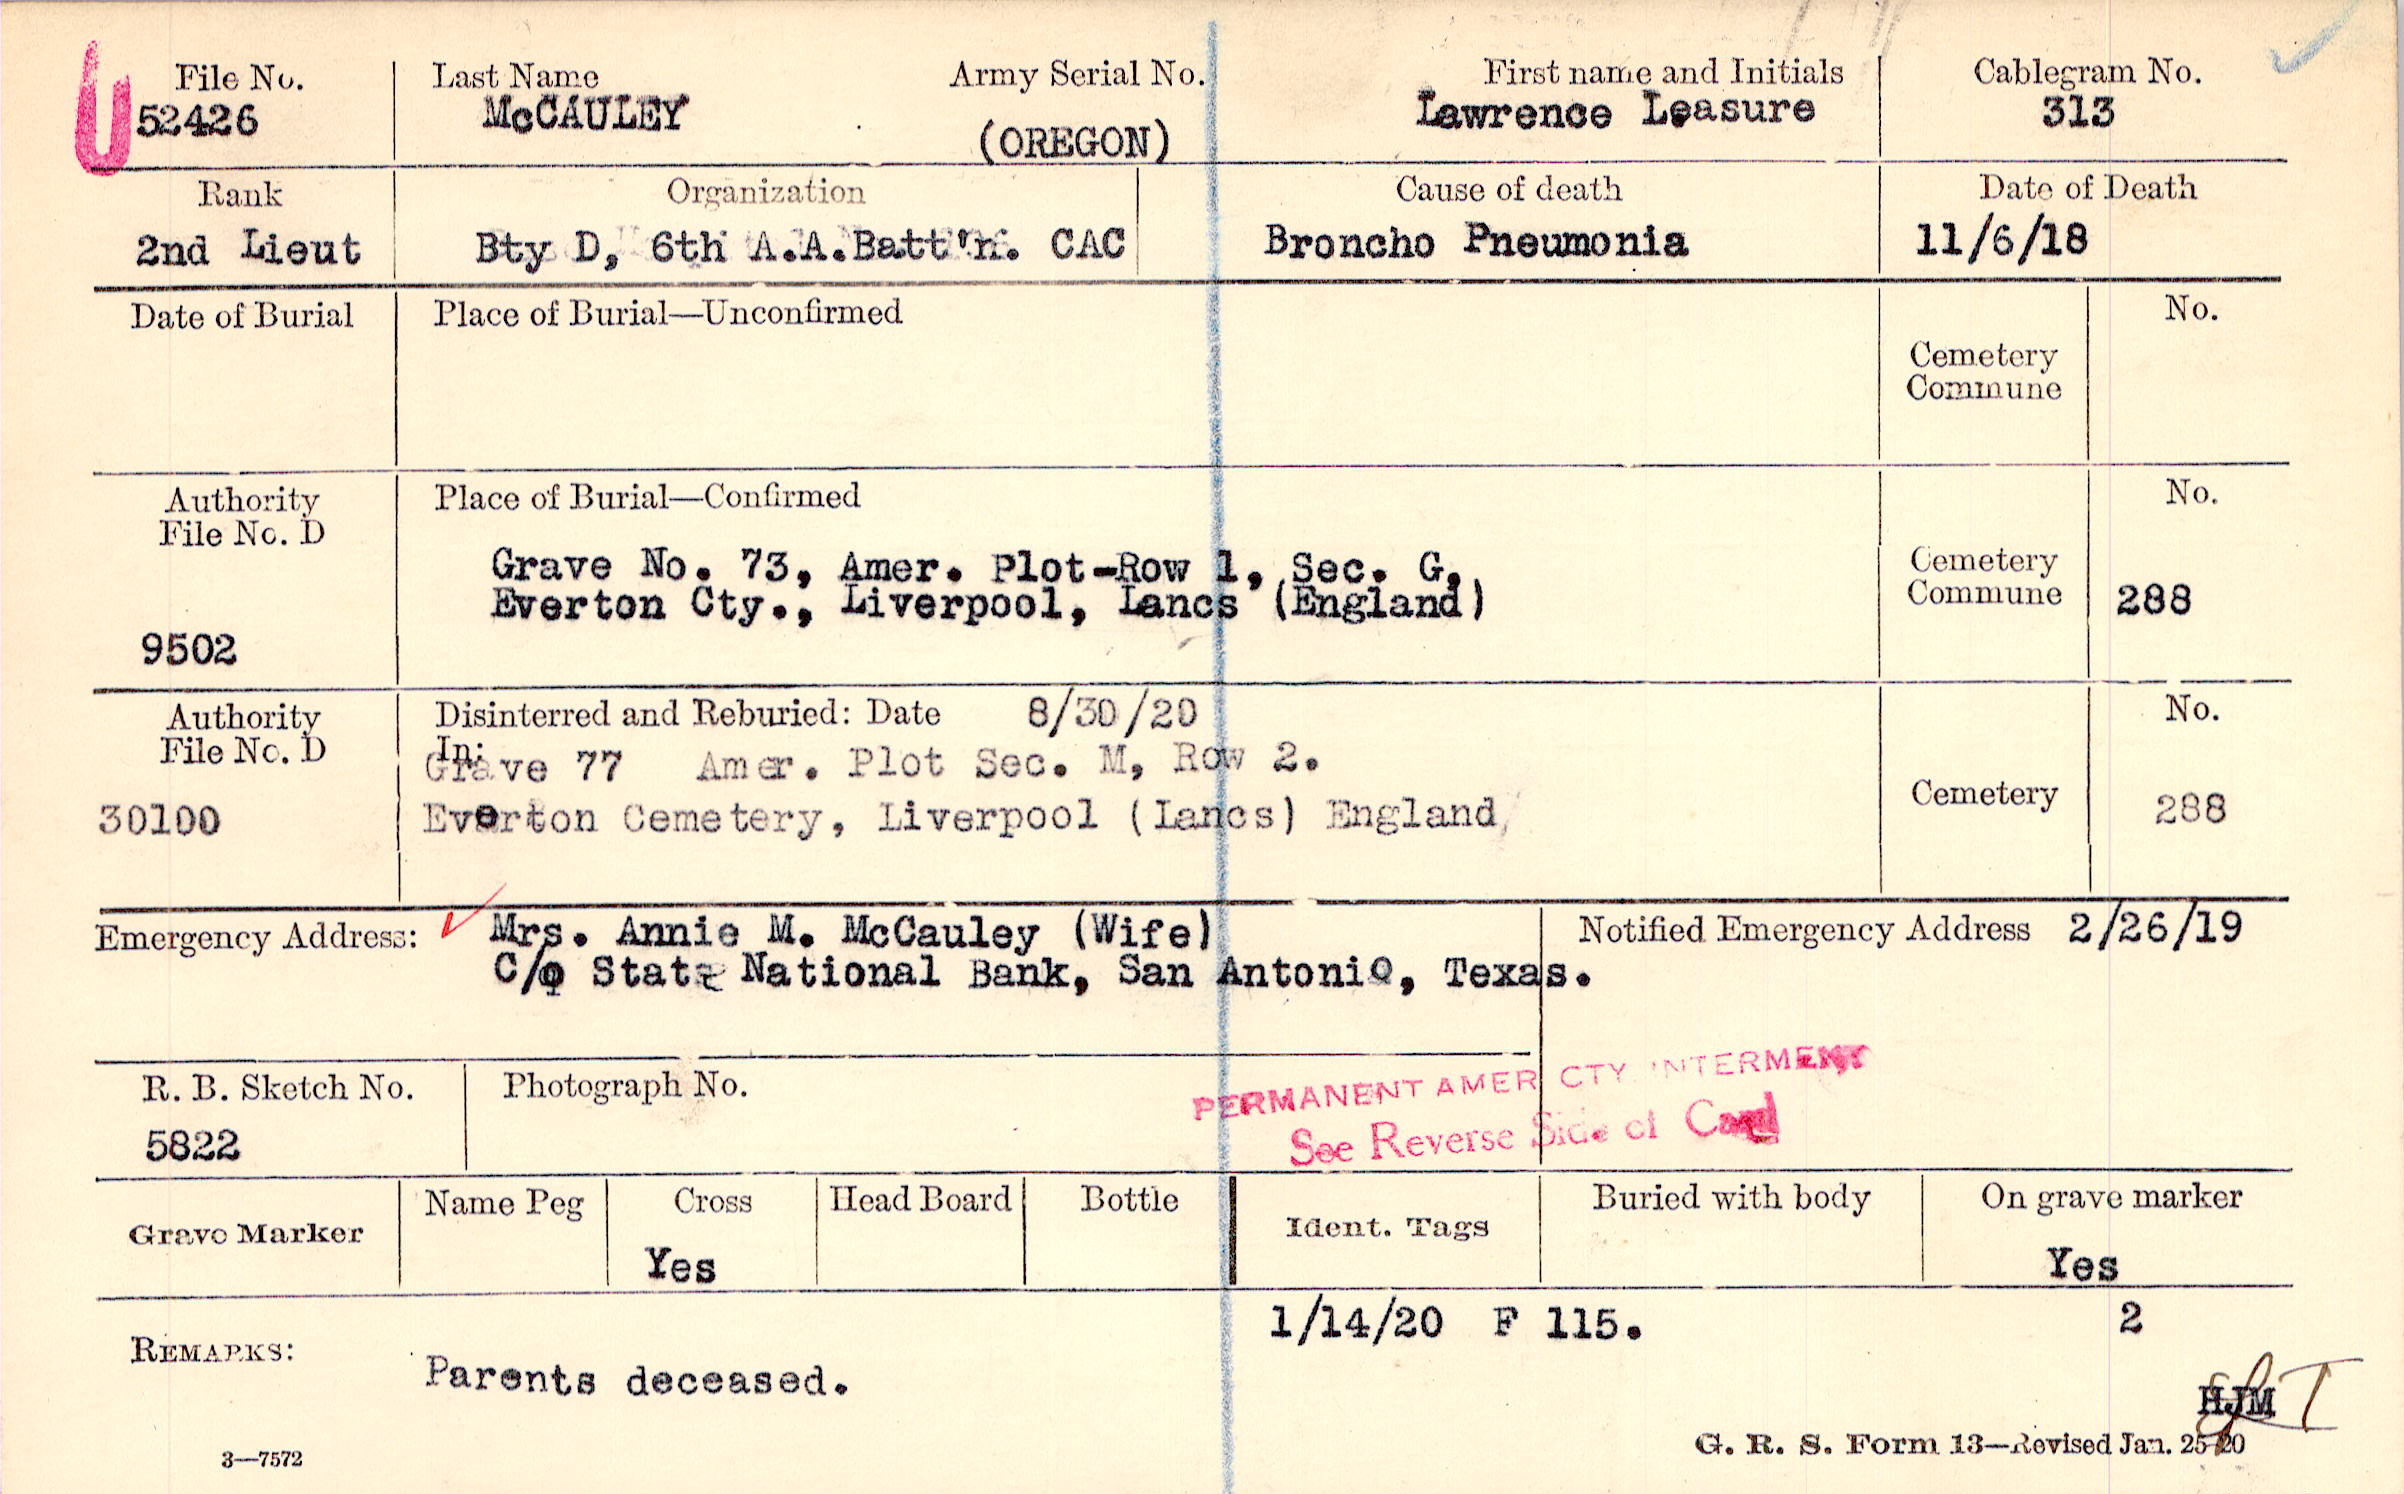 U File No. Last Name Army Serial No. First name and Initials Cablegram No.
52426 McCAULEY (OREGON) Lawrence Leasure 313
Rank Organization Cause of death Date of Death
2nd Lieut Bty D, 6th A.A.Batt'n. CAC Broncho Pneumonia 11/6/18
Date of Burial Place of Burial—Unconfirmed No.
Cemetery
Commune
Authority Place of Burial—Confirmed No.
File No. D
Grave No. 73, Amer. Plot-Row 1, Sec. G, Cemetery
Everton Cty., Liverpool, Lancs (England) Commune 288
9502
Authority Disinterred and Reburied: Date 8/30/20 No.
File No. D In:
Grave 77 Amer. Plot Sec. M, Row 2.
30100 Everton Cemetery, Liverpool (Lancs) England Cemetery 288
Emergency Address: Mrs. Annie M. McCauley (Wife) Notified Emergency Address 2/26/19
C/o State National Bank, San Antonio, Texas.
PERMANENT AMER CTY INTERMENT
R. B. Sketch No. Photograph No.
See Reverse Side of Card
5822
Grave Marker Name Peg Cross Head Board Bottle Ident. Tags Buried with body On grave marker
Yes Yes
1/14/20 F 115. 2
REMARKS: Parents deceased.
HJM
3—7572 G. R. S. Form 13—Revised Jan. 25-20